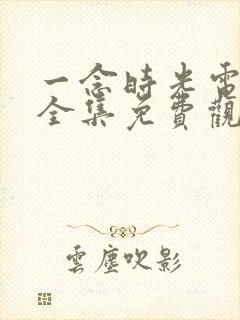 一念時光電
全集免費觀
雲塵吹影